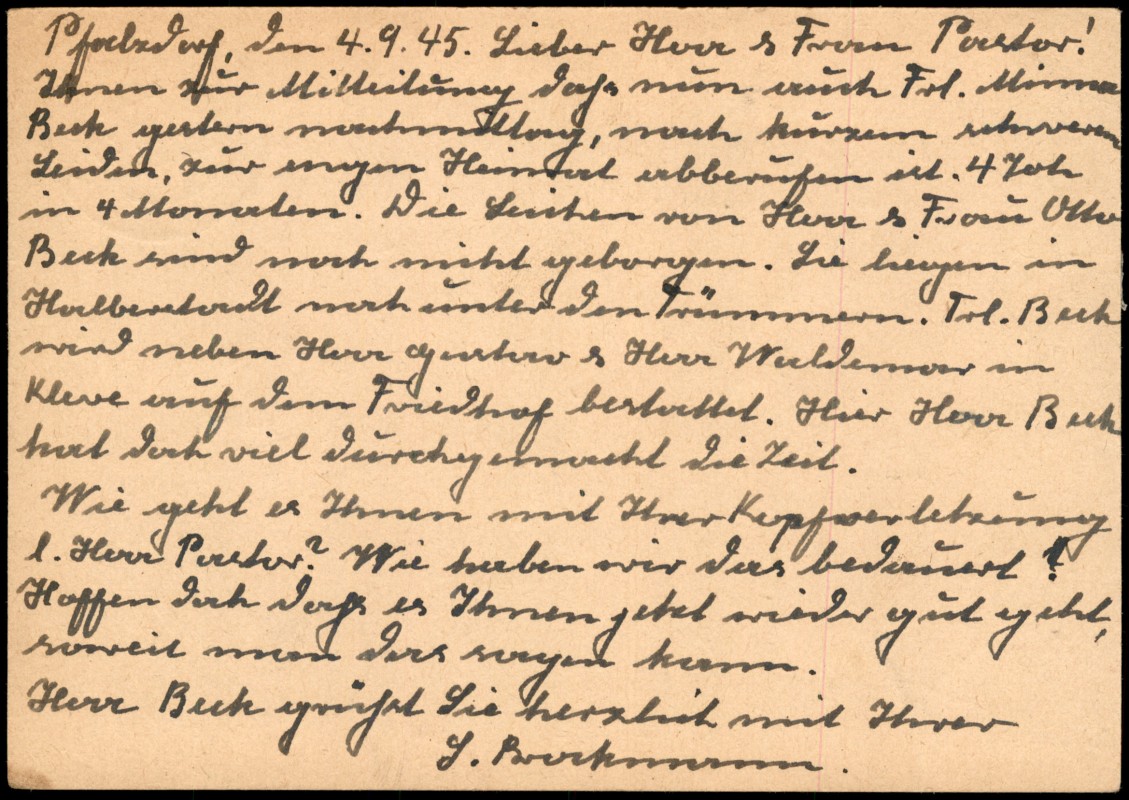 Pfalzdorf, den 4.9.45. Lieber Herr & Frau Pastor!
Ihnen zur Mitteilung daß nun auch Frl. Minna
Beck gestern nachmittag, nach kurzem schweren
Leiden, zur ewigen Heimat abberufen ist. 4 Tote
in 4 Monaten. Die Leichen von Herr & Frau Otto
Beck sind noch nicht geborgen. Sie liegen in
Halberstadt noch unter den Trümmern. Frl. Beck
wird neben Herr Gustav & Herr Waldemar in
Kleve auf dem Friedhof bestattet. Hier Herr Beck
hat doch viel durchgemacht die Zeit.
Wie geht es Ihnen mit Ihrer Kopfverletzung
l. Herr Pastor? Wie haben wir das bedauert!
Hoffen doch daß es Ihnen jetzt wieder gut geht,
soweit man das sagen kann.
Herr Beck grüßt Sie herzlich mit Ihrer
Brockmann.